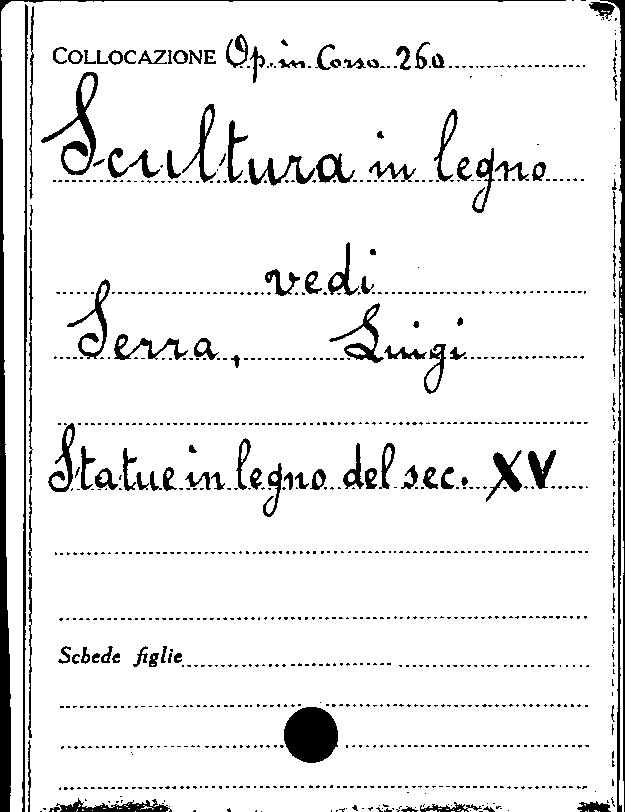 COLLOCAZIONE Op. in Corso 260
Scultura in legno
vedi
Serra, Luigi
Statue in legno del sec. XV
Schede figlie